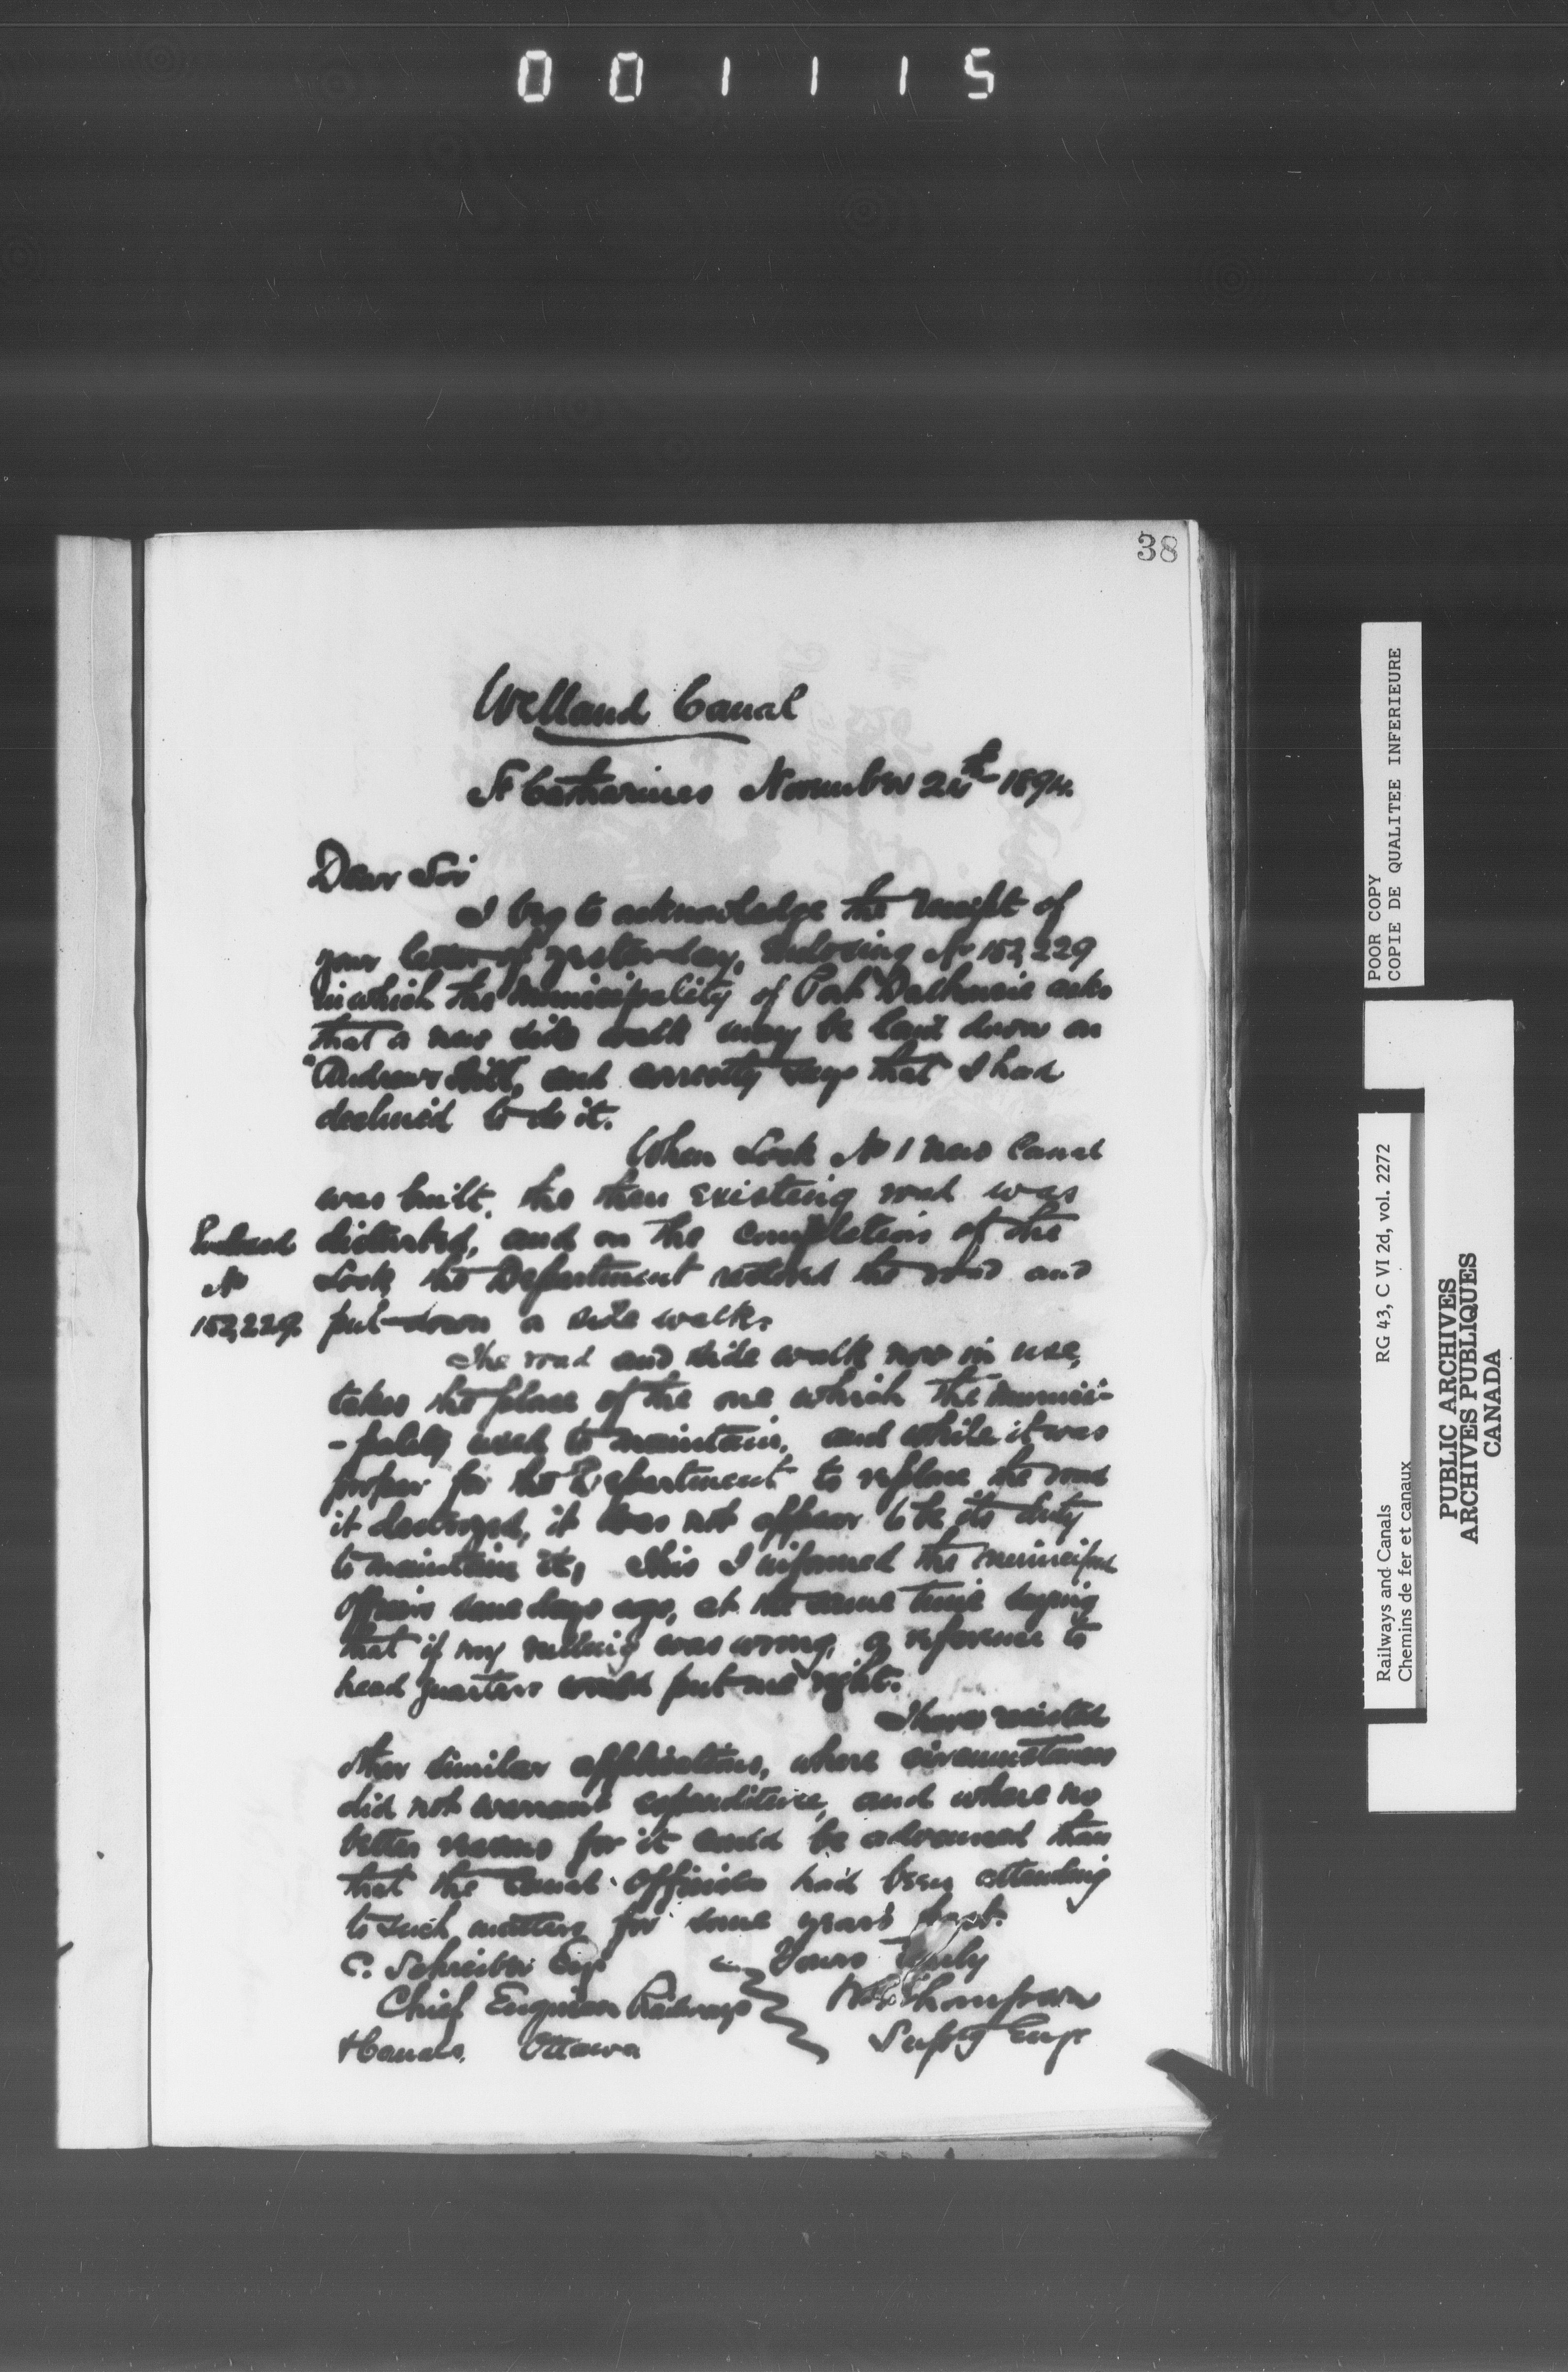 001115
38
Welland Canal
St Catharines November 24th 1894.
Dear Sir
I beg to acknowledge the receipt of
your letter of yesterday, enclosing No 152,229
in which the Municipality of Port Dalhousie asks
that a new side walk may be laid down on
"Andrews Hill", and correctly says that I had
declined to do it.
When Lock No 1 new Canal
was built, the then existing road was
disturbed, and on the completion of the
Lock the Department restored the road and
put down a side walk.
Enclosed
No
152,229.
The road and side walk now in use,
takes the place of the one which the munici-
-pality used to maintain, and while it was
proper for the Department to replace the road
it destroyed, it does not appear to be its duty
to maintain it, this I informed the municipal
Officers some days ago, at the same time saying
that if my ruling was wrong, a reference to
head quarters would put me right.
I have resisted
other similar applications, where circumstances
did not warrant expenditure, and where no
better reasons for it could be advanced than
that the Canal Officials had been attending
to such matters for some years past.
Yours truly
W G Thompson
Suptg Engr
C. Schreiber Esq
Chief Engineer Railways
& Canals. Ottawa
POOR COPY
COPIE DE QUALITEE INFERIEURE
Railways and Canals RG 43, C VI 2d, vol. 2272
Chemins de fer et canaux
PUBLIC ARCHIVES
ARCHIVES PUBLIQUES
CANADA